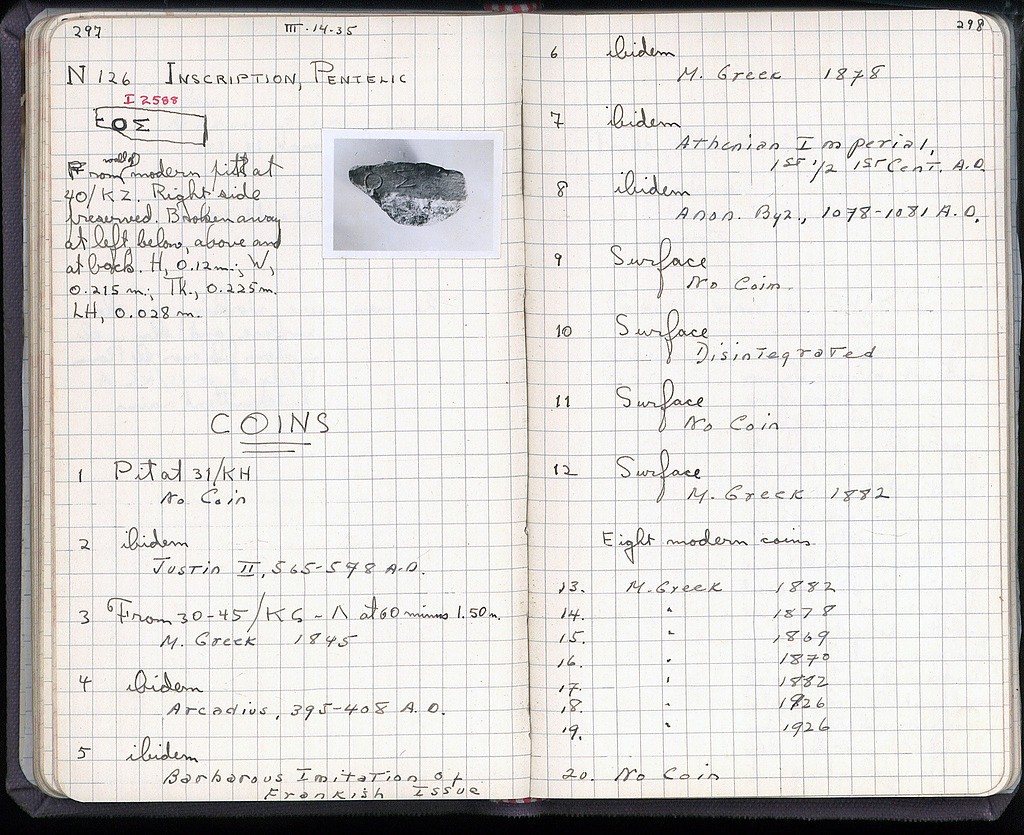 297
III·14·35
N 126 INSCRIPTION, PENTELIC
I 2588
ΟΣ
wall of
From modern pit at
40/ΚΖ. Right side
preserved. Broken away
at left below, above and
at back. H, 0.12m.; W,
0.215 m.; Tk., 0.225m.
LH, 0.028 m.
COINS
1 Pit at 31/ΚΗ
No Coin
2 ibidem
Justin II, 565-578 A.D.
3 From 30-45/ΚϚ - Λ at 60 minus 1.50 m.
M. Greek 1845
4 ibidem
Arcadius, 395-408 A.D.
5 ibidem
Barbarous Imitation of
Frankish Issue
298
6 ibidem
M. Greek 1878
7 ibidem
Athenian Imperial,
1st 1/2 1st Cent. A.D.
8 ibidem
Anon. Byz., 1078-1081 A.D.
9 Surface
No Coin
10 Surface
Disintegrated
11 Surface
No Coin
12 Surface
M. Greek 1882
Eight modern coins
13. M. Greek 1882
14. " 1878
15. " 1869
16. " 1870
17. " 1882
18. " 1926
19. " 1926
20. No Coin